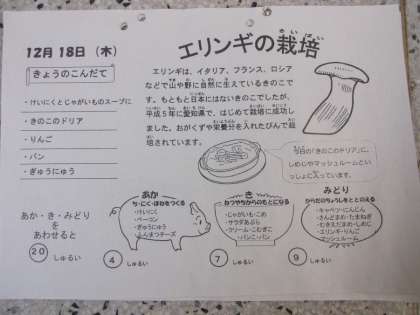 12月 18日 (木)
エリンギの栽培
さいばい
きょうのこんだて
・けいにくとじゃがいものスープに
・きのこのドリア
・りんご
・パン
・ぎゅうにゅう
エリンギは、イタリア、フランス、ロシア
などで山や野に自然に生えているきのこで
す。もともと日本にはないきのこでしたが、
平成5年に愛知県で、はじめて栽培に成功し
ました。おがくずや栄養分を入れたびんで栽
培されています。
今日の「きのこのドリア」に、
しめじやマッシュルームとい
っしょに入っています。
あか・き・みどり
を
あわせると
20 しゅるい
あか
ち・にく・ほねをつくる
・けいにく
・ベーコン
・ぎゅうにゅう
・ふんまつチーズ
4 しゅるい
き
ねつやちからのもとになる
・じゃがいも・こめ
・サラダあぶら
・クリーム・こむぎこ
・パンこ・パン
7 しゅるい
みどり
からだのちょうしをととのえる
・キャベツ・にんじん
・さんどまめ・たまねぎ
・エリンギ・りんご
マッシュルーム
9 しゅるい